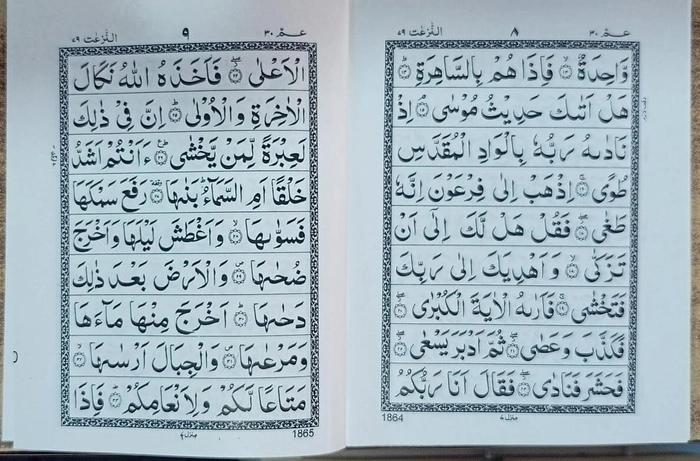 عـمّ ٣٠
٨
النّٰزعٰت ٧٩
وَّاحِدَةٌ ۙ﴿۱۳﴾ فَاِذَا هُمْ بِالسَّاهِرَةِ ؕ﴿۱۴﴾
هَلْ اَتٰىكَ حَدِيْثُ مُوْسٰى ۘ﴿۱۵﴾ اِذْ
نَادٰىهُ رَبُّهٗ بِالْوَادِ الْمُقَدَّسِ
طُوًى ۚ﴿۱۶﴾ اِذْهَبْ اِلٰى فِرْعَوْنَ اِنَّهٗ
طَغٰى ۖ﴿۱۷﴾ فَقُلْ هَلْ لَّكَ اِلٰٓى اَنْ
تَزَكّٰى ۙ﴿۱۸﴾ وَاَهْدِيَكَ اِلٰى رَبِّكَ
فَتَخْشٰى ۚ﴿۱۹﴾ فَاَرٰىهُ الْاٰيَةَ الْكُبْرٰى ۖ﴿۲۰﴾
فَكَذَّبَ وَعَصٰى ۖ﴿۲۱﴾ ثُمَّ اَدْبَرَ يَسْعٰى ۖ﴿۲۲﴾
فَحَشَرَ فَنَادٰى ۖ﴿۲۳﴾ فَقَالَ اَنَا رَبُّكُمُ
منزل ٧
1864
عـمّ ٣٠
٩
النّٰزعٰت ٧٩
الْاَعْلٰى ۖ﴿۲۴﴾ فَاَخَذَهُ اللّٰهُ نَكَالَ
الْاٰخِرَةِ وَالْاُوْلٰى ؕ﴿۲۵﴾ اِنَّ فِيْ ذٰلِكَ
لَعِبْرَةً لِّمَنْ يَّخْشٰى ؕ﴿۲۶﴾ ءَاَنْتُمْ اَشَدُّ
خَلْقًا اَمِ السَّمَآءُ ؕ بَنٰىهَا ﴿۲۷﴾ رَفَعَ سَمْكَهَا
فَسَوّٰىهَا ۙ﴿۲۸﴾ وَاَغْطَشَ لَيْلَهَا وَاَخْرَجَ
ضُحٰىهَا ۖ﴿۲۹﴾ وَالْاَرْضَ بَعْدَ ذٰلِكَ
دَحٰىهَا ؕ﴿۳۰﴾ اَخْرَجَ مِنْهَا مَآءَهَا
وَمَرْعٰىهَا ۖ﴿۳۱﴾ وَالْجِبَالَ اَرْسٰىهَا ۙ﴿۳۲﴾
مَتَاعًا لَّكُمْ وَلِاَنْعَامِكُمْ ؕ﴿۳۳﴾ فَاِذَا
منزل ٧
1865